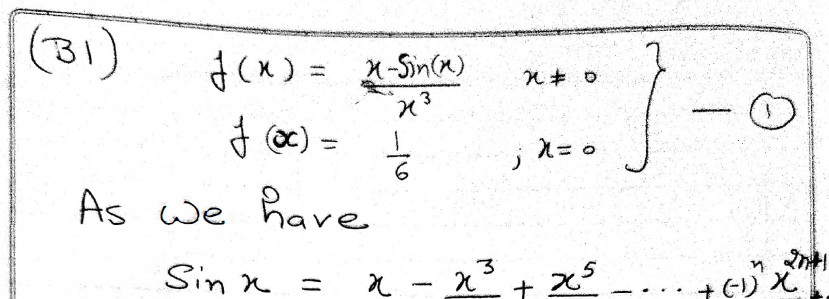 (B1) f(x) = x-Sin(x) / x³ x ≠ 0 } — ①
f(x) = 1/6 ; x = 0
As we have
Sin x = x - x³ + x⁵ - ... + (-1)ⁿ x²ⁿ⁺¹